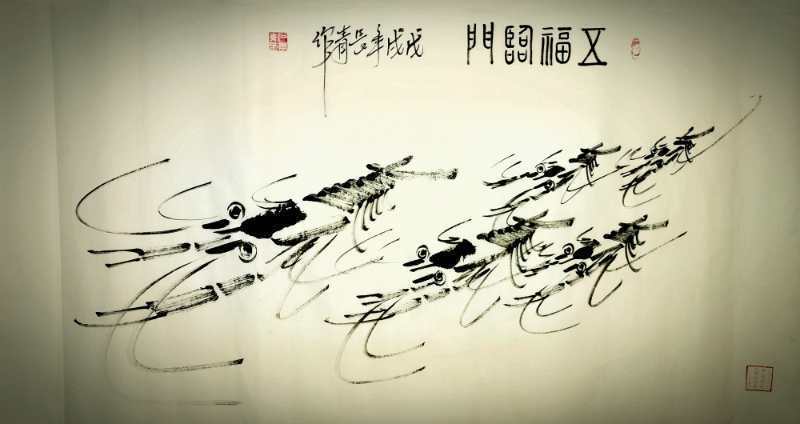 五福臨門
戊戌年长青作